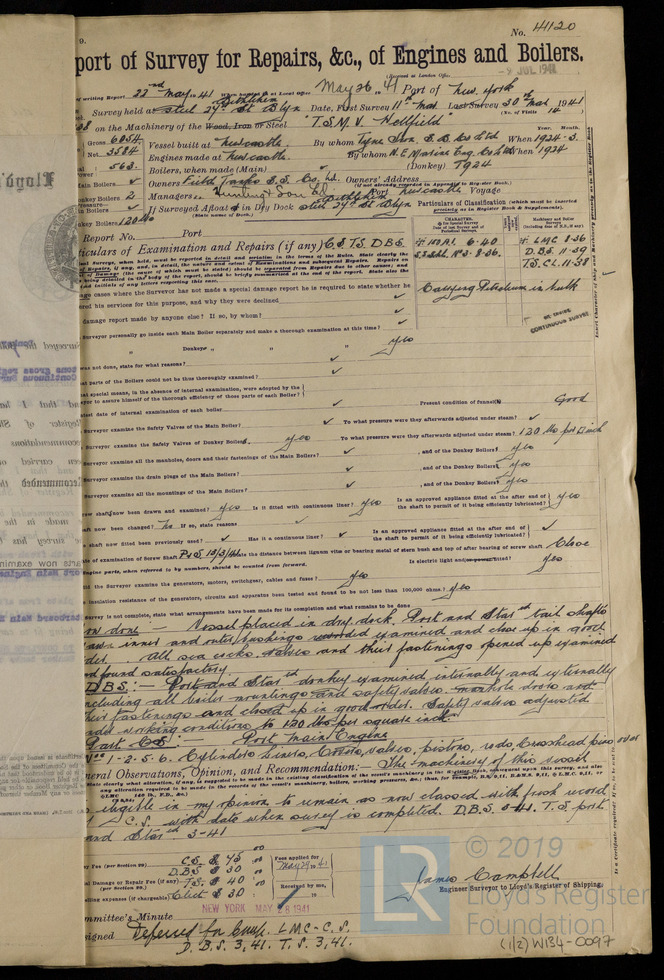 No. 41120
9.
port of Survey for Repairs, &c., of Engines and Boilers.
(Received at London Office
9 JUL 1941
of writing Report 22nd May 1941 When handed in at Local Office May 26 1941 Port of New York
Survey held at Bethlehem Steel 27th St Bklyn Date, First Survey 11th Mar Last Survey 30th Mar 1941
(No. of Visits 14)
on the Machinery of the Wood, Iron or Steel "T.S.M.V. Hellfield"
Gross 6054
Net 3584
563
Vessel built at Newcastle By whom Tyne Iron S.B. Co Ltd When 1924-3
Engines made at Newcastle By whom N.E. Marine Eng. Co Ltd When 1924
Boilers, when made (Main) ✓ (Donkey) 1924
Main Boilers ✓ Owners Field Tank S.S. Co. Ld. Owners' Address
(if not already recorded in Appendix to Register Book.)
Donkey Boilers 2 Managers Hunting & Son Ld. Port Newcastle Voyage
in Boilers ✓ If Surveyed Afloat or in Dry Dock Bethlehem Steel 27th St Bklyn
(State name of Dock.)
Donkey Boilers 120 lb
Particulars of Classification (which must be inserted precisely as in Register Book & Supplements).
Report No. Port
ticulars of Examination and Repairs (if any) CS TS DBS
100A1. 6.40
S.S. No. 3-8.36.
LMC 8-36
D.B.S. 11-39
T.S.CL. 11-38
Carrying Petroleum in bulk
CONTINUOUS SURVEY
age cases where the Surveyor has not made a special damage report he is required to state whether he
ered his services for this purpose, and why they were declined ✓
damage report made by anyone else? If so, by whom? ✓
Surveyor personally go inside each Main Boiler separately and make a thorough examination at this time? ✓
" Donkey " " " yes
was not done, state for what reasons? ✓
at parts of the Boilers could not be thus thoroughly examined? ✓
at special means, in the absence of internal examination, were adopted by the
yor to assure himself of the thorough efficiency of those parts of each Boiler? ✓
test date of internal examination of each boiler Present condition of funnel(s) Good
Surveyor examine the Safety Valves of the Main Boiler? ✓ To what pressure were they afterwards adjusted under steam? ✓
Surveyor examine the Safety Valves of Donkey Boiler? yes To what pressure were they afterwards adjusted under steam? 120 lbs per □ inch
Surveyor examine all the manholes, doors and their fastenings of the Main Boilers? ✓ , and of the Donkey Boilers? yes
Surveyor examine the drain plugs of the Main Boilers? ✓ , and of the Donkey Boilers? yes
Surveyor examine all the mountings of the Main Boilers? ✓ , and of the Donkey Boilers? yes
rew shaft now been drawn and examined? yes Is it fitted with continuous liner? yes Is an approved appliance fitted at the after end of the shaft to permit of it being efficiently lubricated? yes
aft now been changed? No If so, state reasons ✓
shaft now fitted been previously used? ✓ Has it a continuous liner? ✓ Is an approved appliance fitted at the after end of the shaft to permit of it being efficiently lubricated? ✓
te of examination of Screw Shaft P&S 12/3/41 State the distance between lignum vitæ or bearing metal of stern bush and top of after bearing of screw shaft Close
Engine parts, when referred to by numbers, should be counted from forward. Is electric light and/or power fitted? yes
did the Surveyor examine the generators, motors, switchgear, cables and fuses? yes
insulation resistance of the generators, circuits and apparatus been tested and found to be not less than 100,000 ohms? yes
Survey is not complete, state what arrangements have been made for its completion and what remains to be done
Now done :- Vessel placed in dry dock. Port and Starbd tail shafts
inner and outer bushings examined and close up in good
order. All sea cocks, valves and their fastenings opened up examined
and found satisfactory
D.B.S:- Port and Starbd donkey examined internally and externally
including all boiler mountings and safety valves manhole doors and
their fastenings and closed up in good order. Safety valves adjusted
under working conditions to 120 lbs per square inch.
Part CS:- Port Main Engine
Nos 1-2-5-6. Cylinders liners, covers, valves, pistons, rods, crosshead pins
eneral Observations, Opinion, and Recommendation:- The machinery of this vessel
is eligible in my opinion to remain as now classed with fresh record
C.S. with date when survey is completed. D.B.S. 3-41. T.S. port
and Starbd 3-41
Fee (per Section 29) C.S. $ 45.00
D.B.S $ 30.00
ial Damage or Repair Fee (if any) T.S. $ 40.00
(per Section 29.)
elling expenses (if chargeable) Elect $ 30.00
Fees applied for
May 29 1941
Received by me,
19
James Campbell
Engineer Surveyor to Lloyd's Register of Shipping.
mmittee's Minute NEW YORK MAY 28 1941
signed Deferred for Comp. LMC-C.S.
D.B.S. 3,41. T.S. 3,41.
© 2019
LR
Lloyd's Register
Foundation
(1/2) W134-0097